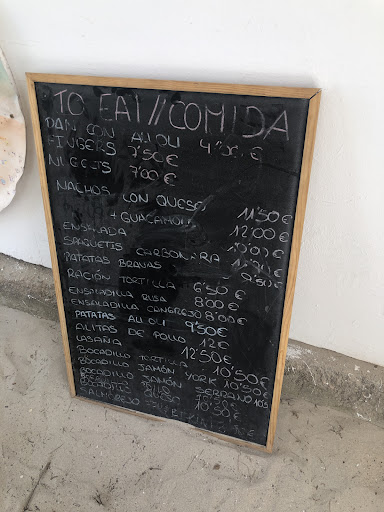 TO EAT//COMIDA
PAN CON ALIOLI 4'00€
FINGERS 7'50€
NUGGETS 7'00€
NACHOS CON QUESO 11'50€
+ GUACAMOLE 12'00€
ENSALADA
SPAGUETIS CARBONARIA
PATATAS BRAVAS
RACIÓN TORTILLA 6'50€
ENSALADILLA RUSA 8'00€
ENSALADILLA CANGREJO 8'00€
PATATAS ALIOLI 9'50€
ALITAS DE POLLO 12€
LASAÑA 12'50€
BOCADILLO TORTILLA 10'50€
BOCADILLO JAMÓN YORK 10'50€
BOCADILLO JAMÓN SERRANO
BOCADILLO
SALMOREJO